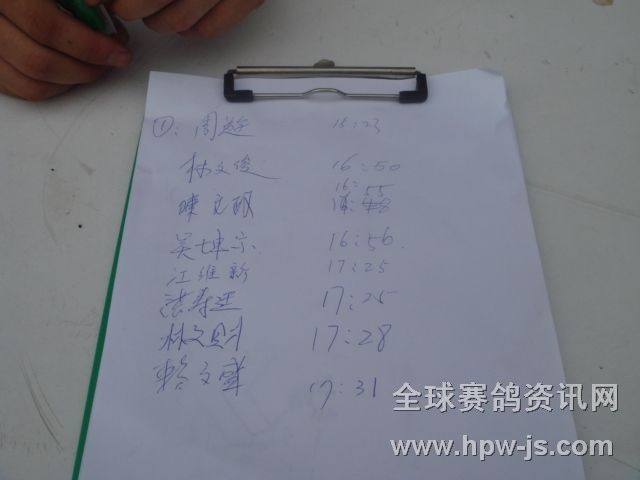 ①: 周游 15:23
林文俊 16:50
陳文明 16:55
吴坤宗 16:56.
江维新 17:25
洪寿廷 17:25
林文财 17:28
賴文華 17:31
全球赛鸽资讯网
www.hpw-js.com